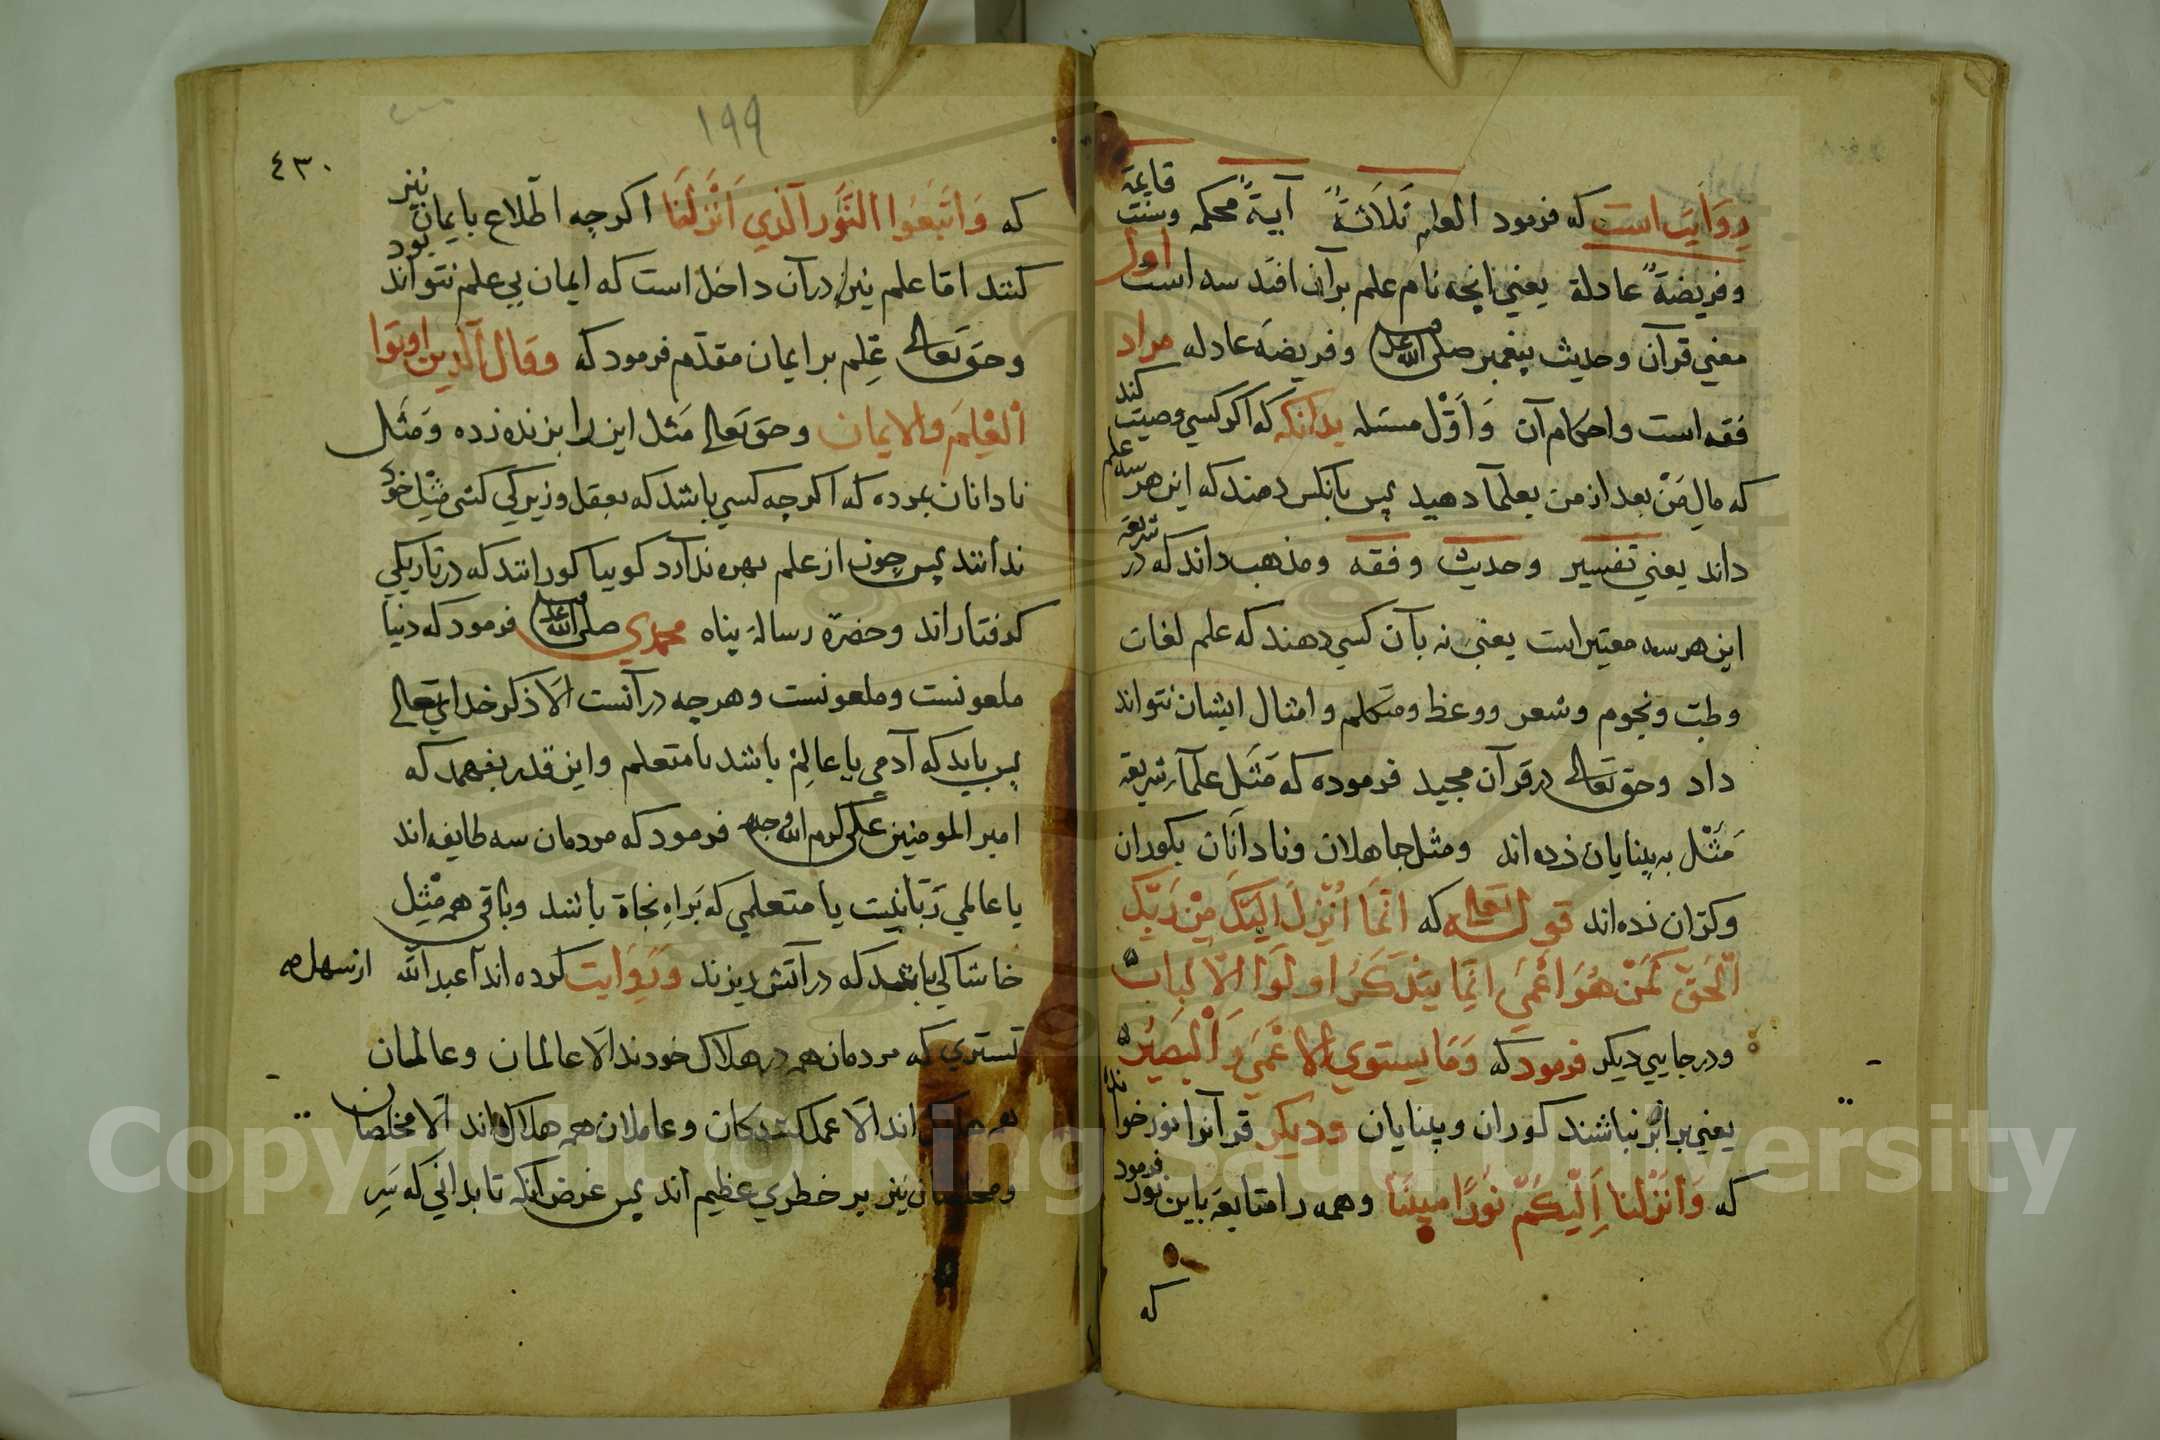 روایت است که فرمود العلم ثلاثةٌ آیةٌ محکمه وسنت قایمة
وفریضةً عادلة یعنی انچه نام علم برآن افتد سه است اول
معنی قرآن وحدیث پیغمبر صلی الله علیه وسلم وفریضه عادله مراد
فقه است واحکام آن وَاَوّل مسئله بدانکه که اکر کسی وصیت کند
که مالِ مَنْ بعد از من بعلمآ دهید پس بانکس دهند که این هر سه علم
داند یعنی تفسیر وحدیث وفقه ومذهب داند که در شریعة
این هر سه معتبر است یعنی نه بآن کسی دهند که علم لغات
وطبّ ونجوم وشعر ووعظ ومتکلم وامثال ایشان نتواند
داد وحق تعالی در قرآن مجید فرموده که مَثَل علمآءِ شریعة
مَثَل به بینایان زده اند ومثل جاهلان ونادانان بکوران
وکرّان زده اند قوله تعالی که انّمَا اُنْزِلَ اِلَیْکَ مِنْ رَبِّکَ
الْحَقّ کَمَنْ هُوَ اَعْمَی اِنّمَا یَتَذَکّرُ اولُوا الاَلباب
ودر جایی دیکر فرمود که وَمَا یستوی الاعْمَی وَالْبَصِیْرُ
یعنی برابر نباشند کوران وبینایان ودیکر قرآنرا نور خواند
که وَاَنْزَلْنا اِلَیْکُمْ نُورًا مبینًا وهمه را متابعة باین نور فرمود
که
١٩٩
٤٣٠
که وَاتَّبَعُوا النُّور الّذی اَنْزَلنَا اکرچه اطّلاع بایمان نیز
کنند امّا علم نیز درآن داخل است که ایمان بی علم نتواند بود
وحق تعالی عِلم بر ایمان مقدّم فرمود که وقال الّذین اوتوا
الْعِلمَ والایمان وحق تعالی مَثل این را بزنده زده ومَثَل
نادانان بمرده که اکرچه کسی باشد که بعقل وزیرکی کسی مثِل خود
ندانند پس چون از علم بهره ندارد کوییا کورانند که در تاریکی
کرفتاراند وحضرة رسالة پناه محمدی صلی الله علیه وسلم فرمود که دنیا
ملعونست وملعونست وهرچه درآنست الّا ذکر خدای تعالی
پس باید که آدمی یا عالِم باشد یا متعلم واین قدر بفهمد که
امیر المومنین علی کرم الله وجهه فرمود که مردمان سه طایفه اند
یا عالمی رَبّانیست یا متعلمی که بَراهِ نجاة باشد وباقی همه مثِل
خاشاکی باشد که در آتش ریزند ورِوَایت کرده اند عبد الله از سهل
تستری که مردمان همه در هلاک خودند الّا عالمان وعالمان
همه اند الّا عمل کنندکان وعاملان همه هلاک اند الّا مخلصان
ومخلصان نیز بر خطری عظیم اند پس غرض آنکه تا بدانی که سَرِ